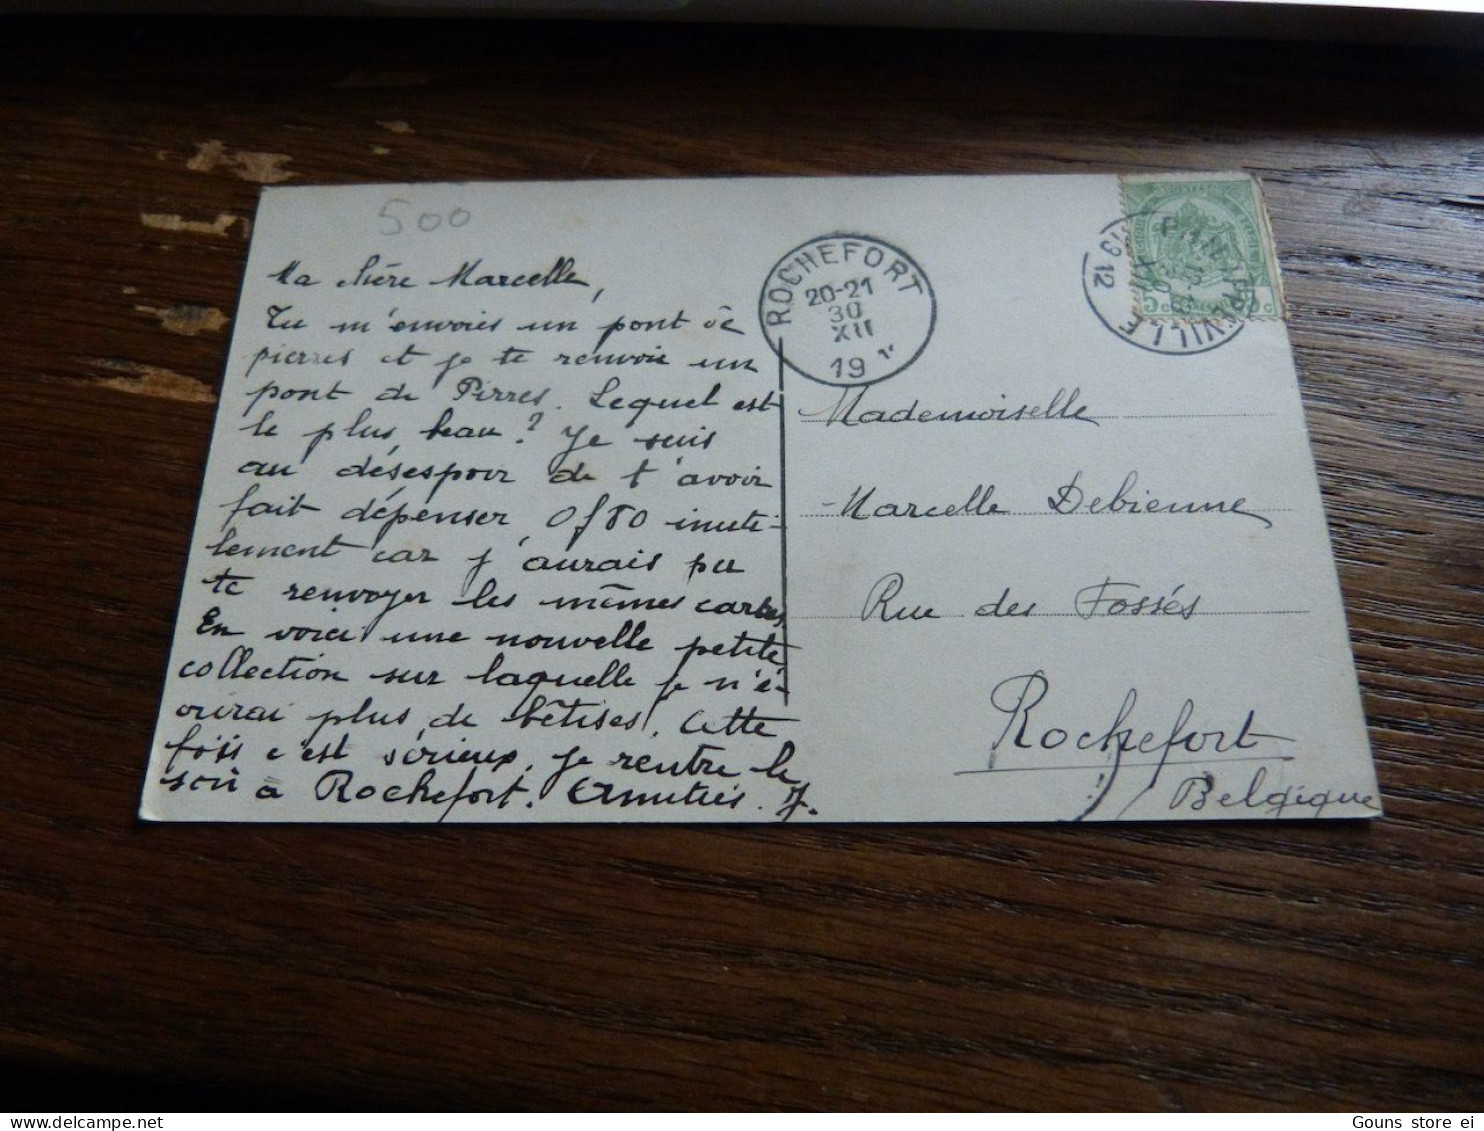 500
Ma chère Marcelle,
Tu m'envoies un pont de
pierres et je te renvoie un
pont de Pierres. Lequel est
le plus beau ? Je suis
au désespoir de t'avoir
fait dépenser 0f80 inuti-
lement car j'aurais pu
te renvoyer les mêmes cartes,
En voici une nouvelle petite
collection sur laquelle je n'é-
crirai plus de bêtises. Cette
fois c'est sérieux. Je rentre le
soir à Rochefort. Amitiés. J.
ROCHEFORT
20-21
30
XII
19
PHILIPPEVILLE
12
Mademoiselle
Marcelle Debienne
Rue des Fossés
Rochefort
Belgique
Gouns store ei